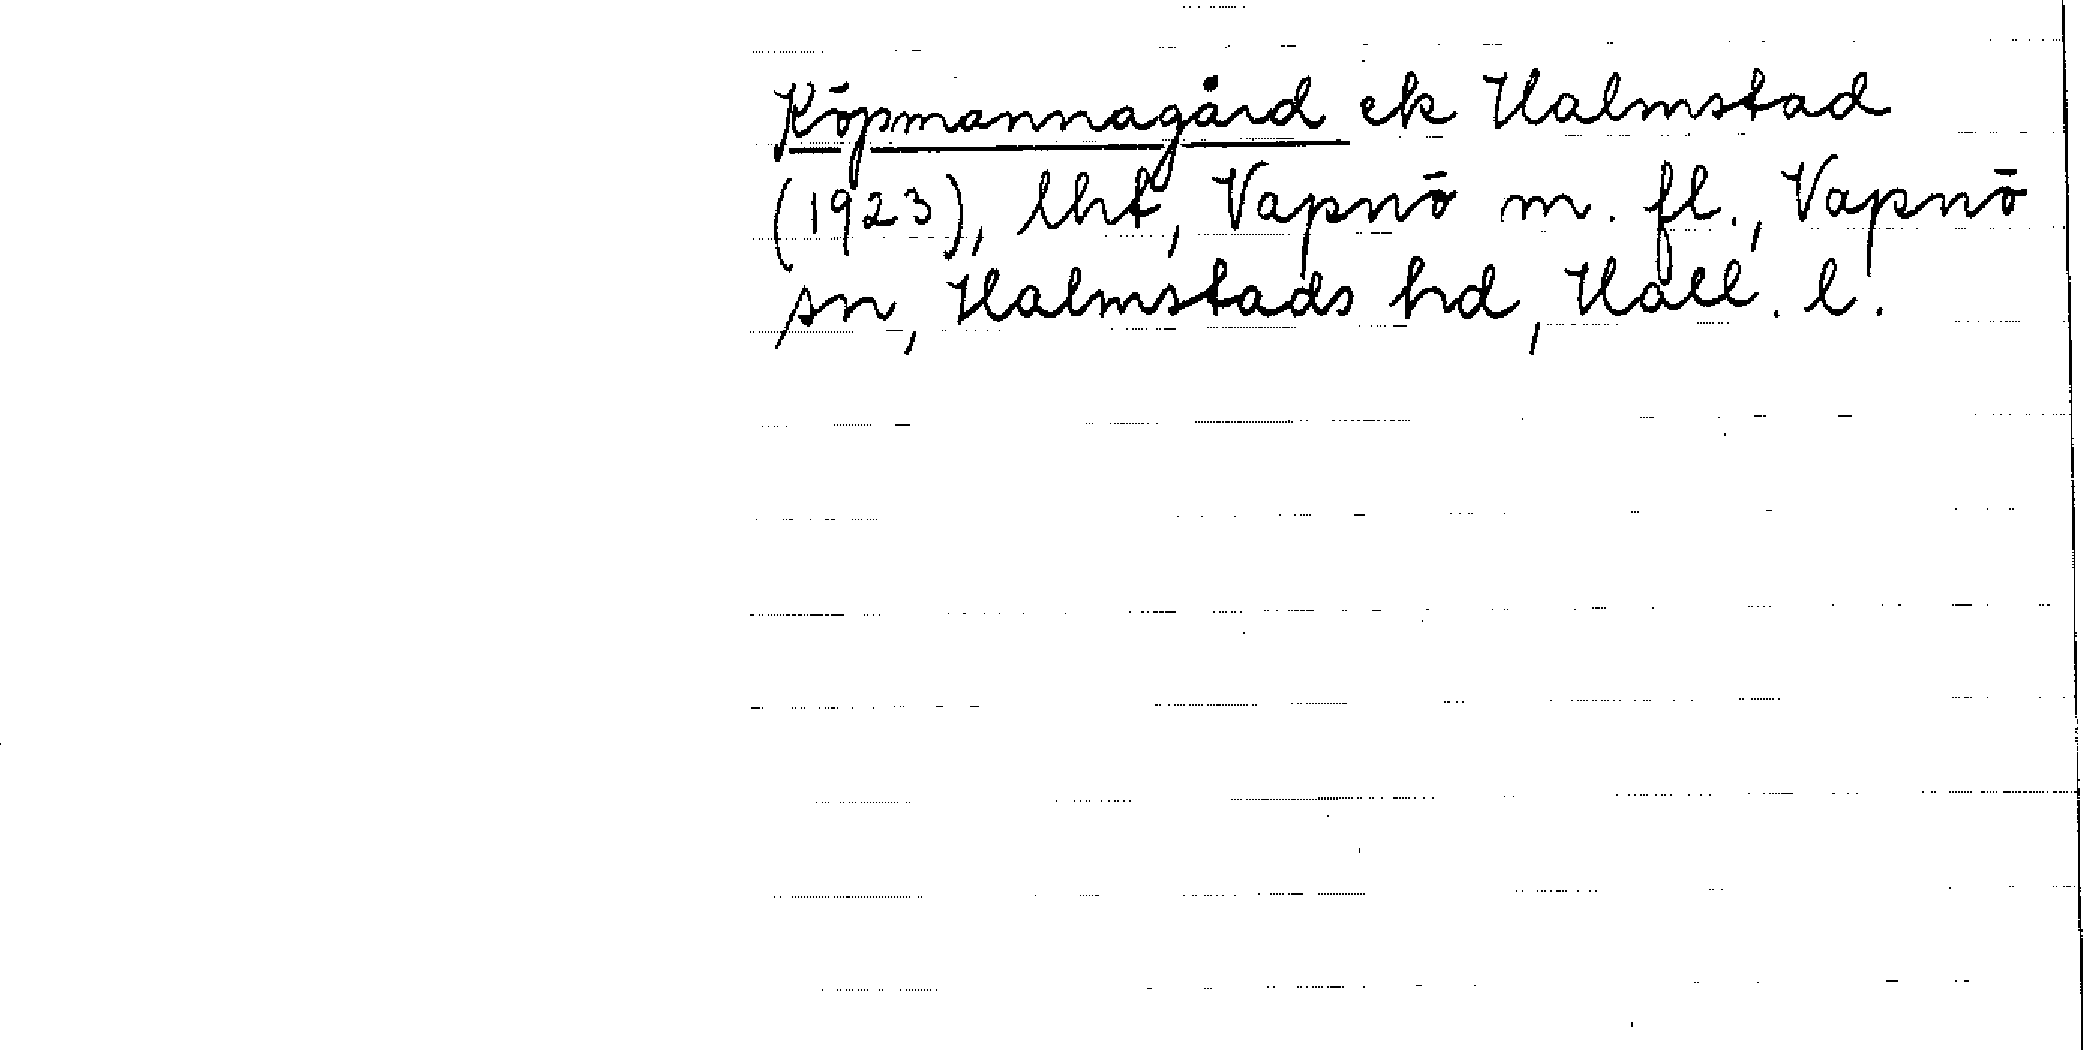 Köpmannagård ek Halmstad
(1923), lht, Vapnö m. fl., Vapnö
sn, Halmstads hd, Hall. l.